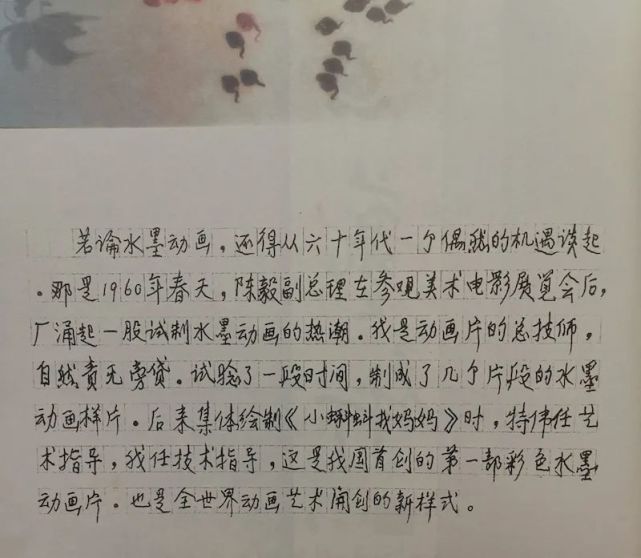 若论水墨动画，还得从六十年代一个偶然的机遇谈起
。那是1960年春天，陈毅副总理在参观美术电影展览会后，
厂涌起一股试制水墨动画的热潮。我是动画片的总技师，
自然责无旁贷。试验了一段时间，制成了几个片段的水墨
动画样片。后来集体绘制《小蝌蚪找妈妈》时，特伟任艺
术指导，我任技术指导，这是我国首创的第一部彩色水墨
动画片。也是全世界动画艺术开创的新样式。